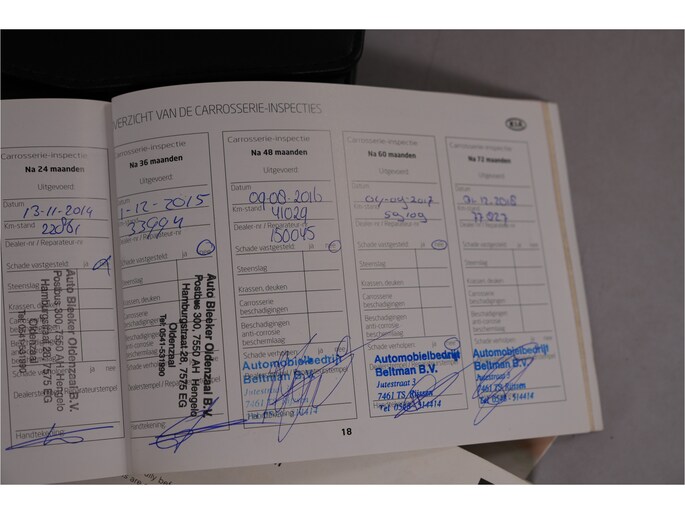 VERZICHT VAN DE CARROSSERIE-INSPECTIES
KIA
Carrosserie-inspectie
Na 24 maanden
Uitgevoerd
Datum
13-11-2014
Km-stand
Dealer-nr / Reparateur-nr
Schade vastgesteld: ja
Steenslag
Krassen, deuken
Carrosserie
beschadigingen
Beschadigingen
anti-corrosie
bescherming
Handtekening:
Auto Bleeker Oldenzaal B.V.
Postbus 300, 7550 AH Hengelo
Hamburgstraat 28, 7575 EG
Oldenzaal
Tel: 0541-531900
Carrosserie-inspectie
Na 36 maanden
Uitgevoerd
Datum
1-12-2015
Km-stand
33994
Dealer-nr / Reparateur-nr
Schade vastgesteld: ja
Steenslag
Krassen, deuken
Carrosserie
beschadigingen
Beschadigingen
anti-corrosie
bescherming
Handtekening:
Auto Bleeker Oldenzaal B.V.
Postbus 300, 7550 AH Hengelo
Hamburgstraat 28, 7575 EG
Oldenzaal
Tel: 0541-531900
Carrosserie-inspectie
Na 48 maanden
Uitgevoerd
Datum
09-08-2016
Km-stand
41029
Dealer-nr / Reparateur-nr
150045
Schade vastgesteld: ja nee
Steenslag
Krassen, deuken
Carrosserie
beschadigingen
Beschadigingen
anti-corrosie
bescherming
Schade verholpen: ja nee
Automobielbedrijf
Beltman B.V.
Jutestraat 3
Handtekening:
Carrosserie-inspectie
Na 60 maanden
Uitgevoerd
Datum
Km-stand
Dealer-nr / Reparateur-nr
Schade vastgesteld: ja nee
Steenslag
Krassen, deuken
Carrosserie
beschadigingen
Beschadigingen
anti-corrosie
bescherming
Schade verholpen: ja
Automobielbedrijf
Beltman B.V.
Jutestraat 3
7461 TS Rijssen
Tel. 0548 - 514414
Handtekening:
Carrosserie-inspectie
Na 72 maanden
Uitgevoerd
Datum
Km-stand
Dealer-nr / Reparateur-nr
Schade vastgesteld: ja nee
Steenslag
Krassen, deuken
Carrosserie
beschadigingen
Beschadigingen
anti-corrosie
bescherming
Automobielbedrijf
Beltman B.V.
Jutestraat 3
7461 TS Rijssen
Tel. 0548 - 514414
18